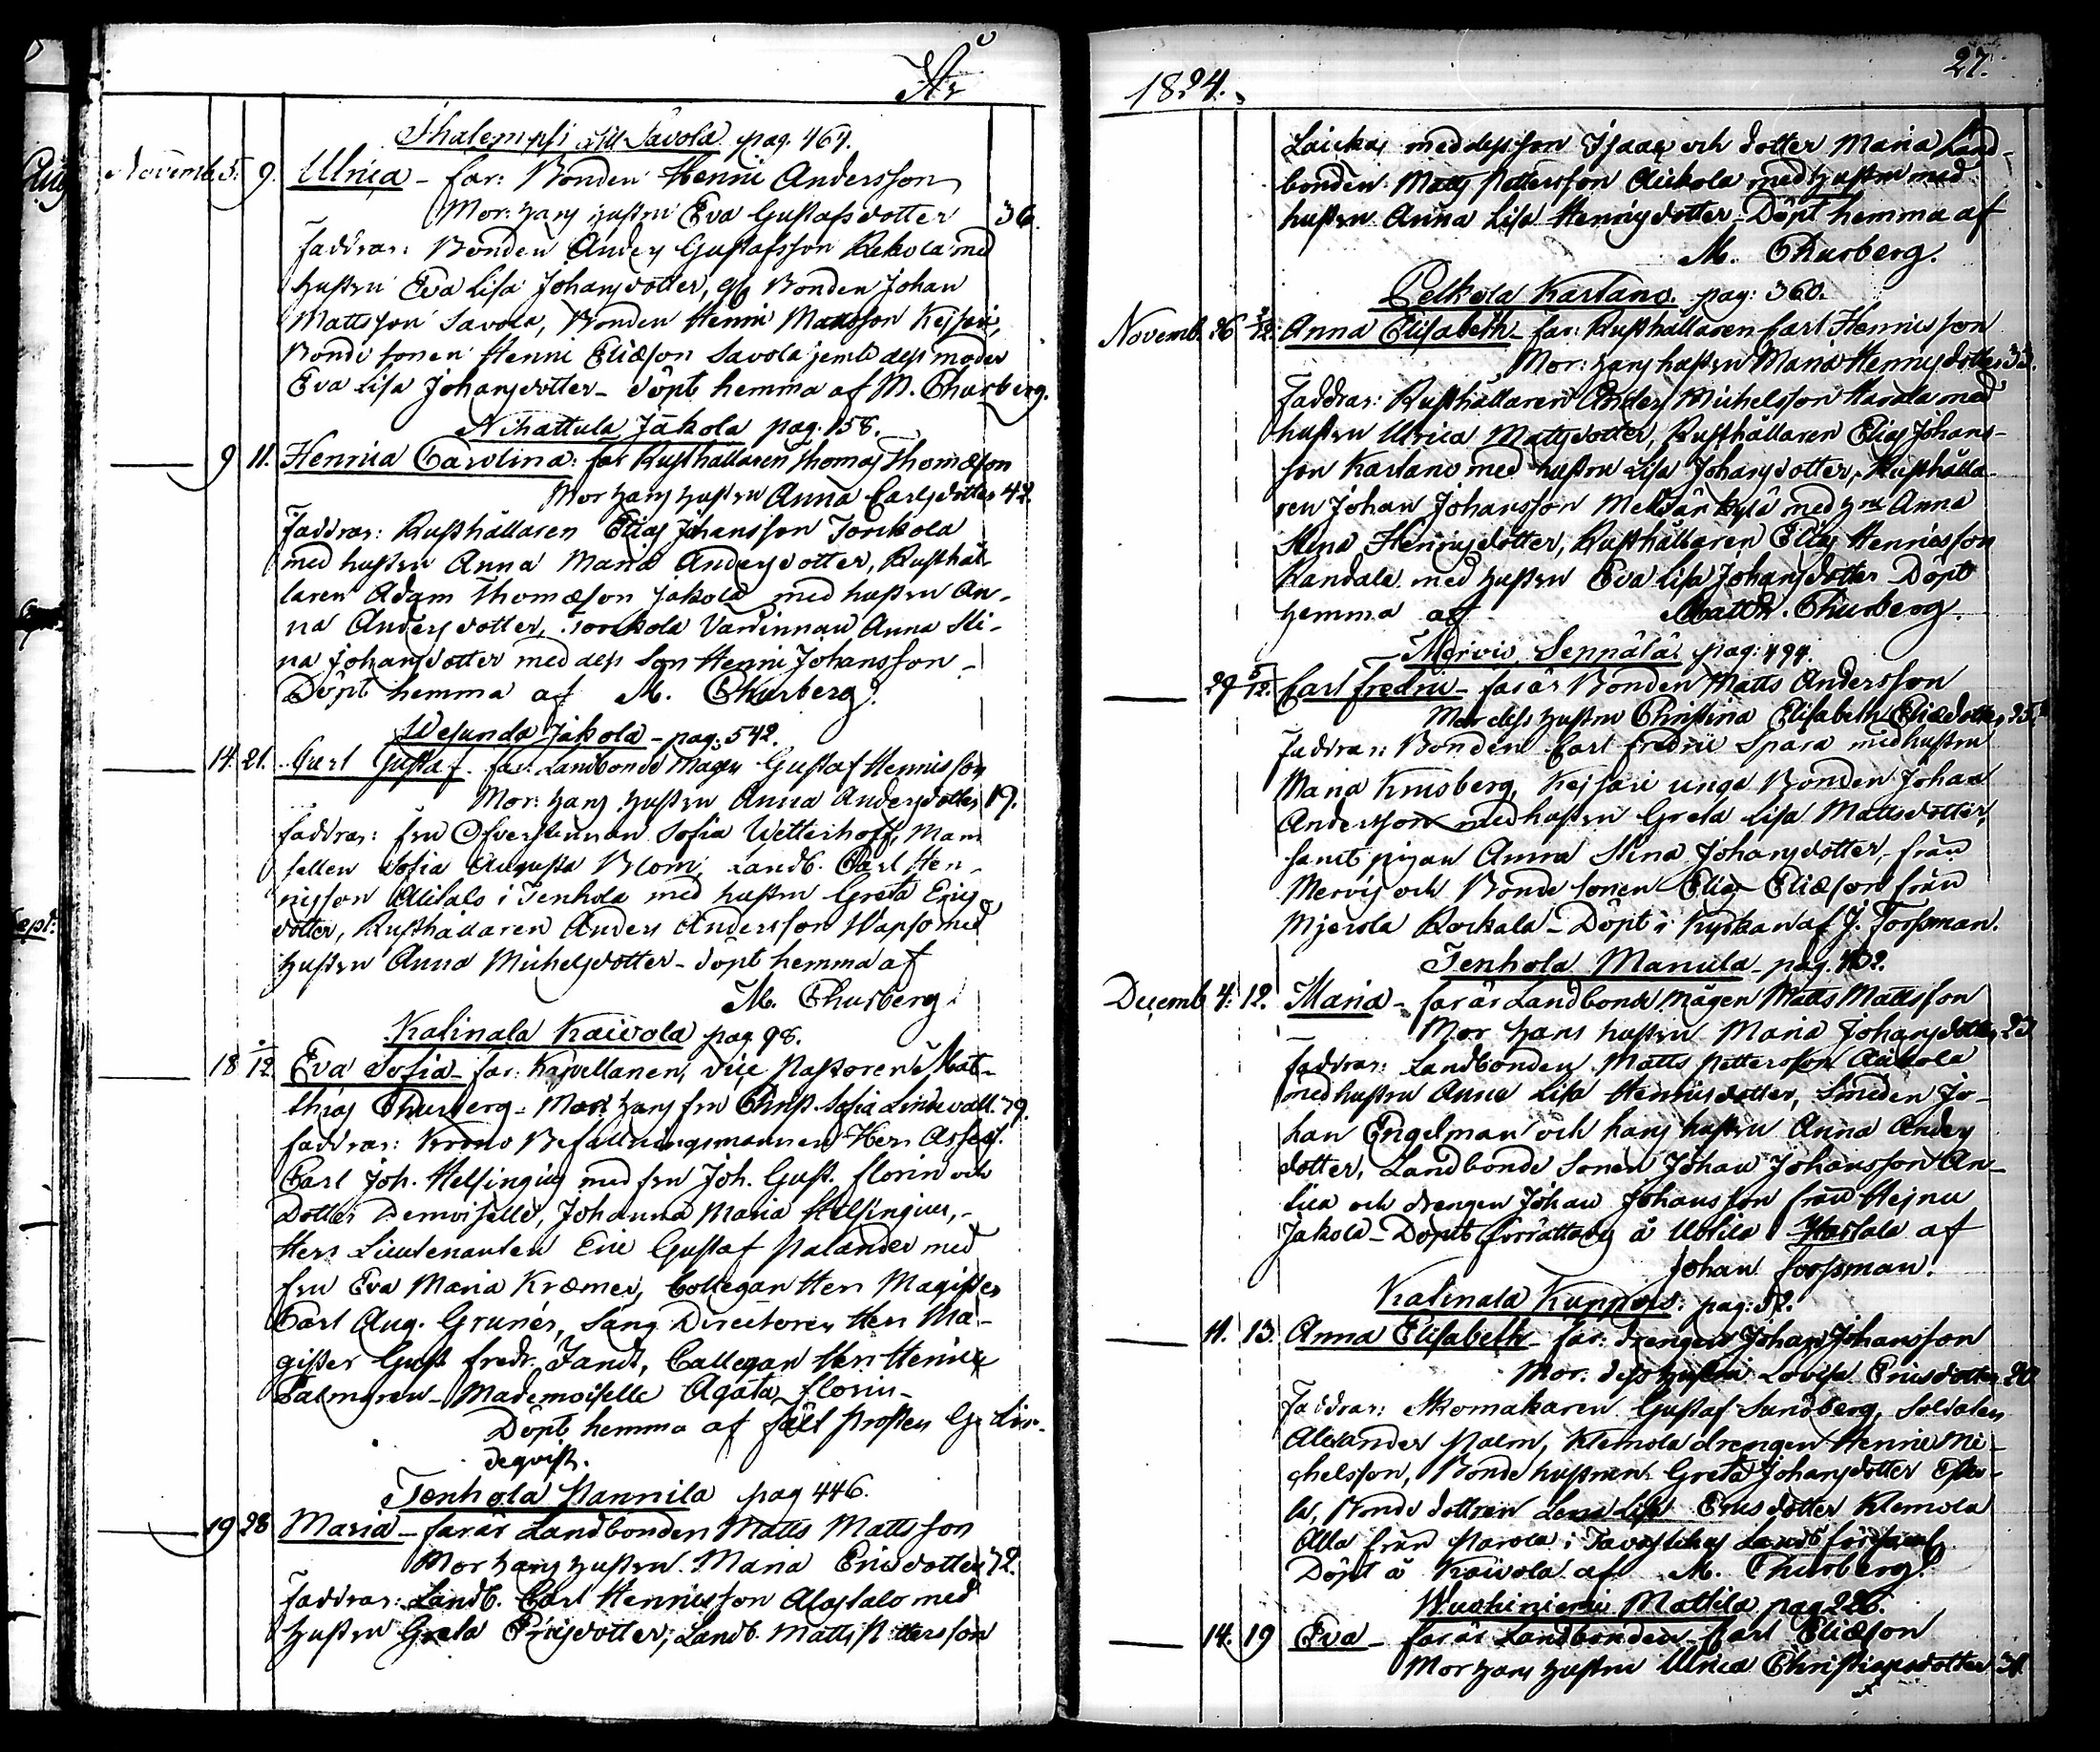 År
Ihalempsi Lill Savola pag. 464.
Novemb. 5. 9. Ulrica - far: Bonden Henric Andersson
Mor: hans hustru Eva Gustafsdotter 36.
Faddrar: Bonden Anders Gustafsson Rekola med
hustru Eva Lisa Johansdotter, Bonden Johan
Mattsson Savola, Bonden Henric Mattsson Kejsari,
Bonde sonen Henric Eliæson Savola jemte dess moder
Eva Lisa Johansdotter - döpt hemma af M. Churberg.
Nihattula Jakola pag. 158.
9 11. Henrica Carolina: far Rusthållaren Thomas Thomæson
Mor hans hustru Anna Carlsdotter 42.
Faddrar: Rusthållaren Elias Johansson Torckola
med hustru Anna Maria Andersdotter, Rusthål-
laren Adam Thomæson Jakola med hustru An-
na Andersdotter, Torckola Värdinnan Anna Sti-
na Johansdotter med dess Son Henric Johansson -
Döpt hemma af M. Churberg.
Wesunda Jakola - pag. 542.
14. 21. Carl Gustaf. far: Landbonde Mågen Gustaf Henricsson
Mor: hans hustru Anna Andersdotter 19.
Faddrar: Fru Öfverstinnan Sofia Wetterhoff, Mam-
sellen Sofia Augusta Blom, Landb. Carl Hen-
ricsson Alitalo i Tenhola med hustru Greta Erics
dotter, Rusthållaren Anders Andersson Wapso med
hustru Anna Michelsdotter - döpt hemma af
M. Churberg.
Katinala Kaivola pag 98.
18 /12 Eva Sofia - far: Kapellanen, vice Pastoren Mat-
thias Churberg - Mor: hans fru Christ. Sofia Lindevall. 39.
Faddrar: Krono Befallningsmannen Herr Assess.
Carl Joh. Helsingius med fru Joh. Gust. Florin och
Dotter Demoiselle, Johanna Maria Helsingius, -
Herr Lieutenanten Eric Gustaf Palander med
fru Eva Maria Kræmer, Collegan Herr Magister
Carl Aug. Grunér, Sång Directoren Herr Ma-
gister Gust. Fredr. Jandt, Collegan Herr Henric
Palmgren - Mademoiselle Agata Florin -
Döpt hemma af fält Prosten G. Lin-
deqvist.
Tenhola Pannila pag 446.
19 28 Maria - far är Landbonden Matts Mattsson
Mor hans hustru Maria Ericsdotter 42.
Faddrar: Landb. Carl Henricsson Alastalo med
hustru Greta Ericsdotter, Landb. Matts Pettersson
1824. 27.
Laickas med dess son Isaac och dotter Maria Land-
bonden Matts Pettersson Aickola med hustru med
hustru Anna Lisa Henricsdotter - Döpt hemma af
M. Churberg.
Pelkola Kartano. pag: 360.
Novemb. 26 /12. Anna Elisabeth - far: Rusthållaren Carl Henricsson
Mor: hans hustru Maria Henricsdotter 33.
Faddrar: Rusthållaren Anders Michelsson Harala med
hustru Ulrica Mattsdotter, Rusthållaren Elias Johans-
son Kartano med hustru Lisa Johansdotter, Rusthålla-
ren Johan Johansson Metsänkylä med hru Anna
Stina Henricsdotter, Rusthållaren Elias Henricsson
Randala med hustru Eva Lisa Johansdotter Döpt
hemma af Matth. Churberg.
Mervis Seppälä pag: 494.
29 5/12. Carl Fredric - far är Bonden Matts Andersson
Mor dess hustru Christina Elisabeth Eliædotter 25.
Faddrar: Bonden Carl Fredric Spara med hustru
Maria Krusberg, Kejsari unga Bonden Johan
Andersson med hustru Greta Lisa Mattsdotter,
samt pigan Anna Stina Johansdotter från
Mervis och Bonde sonen Elias Eliæson från
Mjerola Rockala - Döpt i Kyrkan af J. Forssman.
Tenhola Manula - pag. 462.
Decemb. 4. 12. Maria - far är Landbonde mågen Matts Mattsson
Mor hans hustru Maria Johansdotter 23
Faddrar: Landbonden Matts Pettersson Aickola
med hustru Anna Lisa Henricsdotter, Smeden Jo-
han Engelman och hans hustru Anna Anders
dotter, Landbonde Sonen Johan Johansson An-
tila och drengen Johan Johansson från Heinu
Jakola - Döpt förrättades å Uotila Hastala af
Johan Forssman.
Katinala Kuppois: pag: 52.
11. 13. Anna Elisabeth far: drengen Johan Johansson
Mor: dess hustru Lovisa Ericsdotter 20
Faddrar: Skomakaren Gustaf Sandberg, Soldaten
Alexander Palm, Klemola drengen Henric Mi-
chelsson, Bonde hustrun Greta Johansdotter
Bonde dottren Lena Lisa Ericsdotter Klemola
Alla från Parola i Tavastehus Lands församl.
Döpt å Kaivola af M. Churberg.
Wuohiniemi Mattila pag 226.
14. 19 Eva - far är Landbonden Carl Eliæson
Mor hans hustru Ulrica Christiansdotter